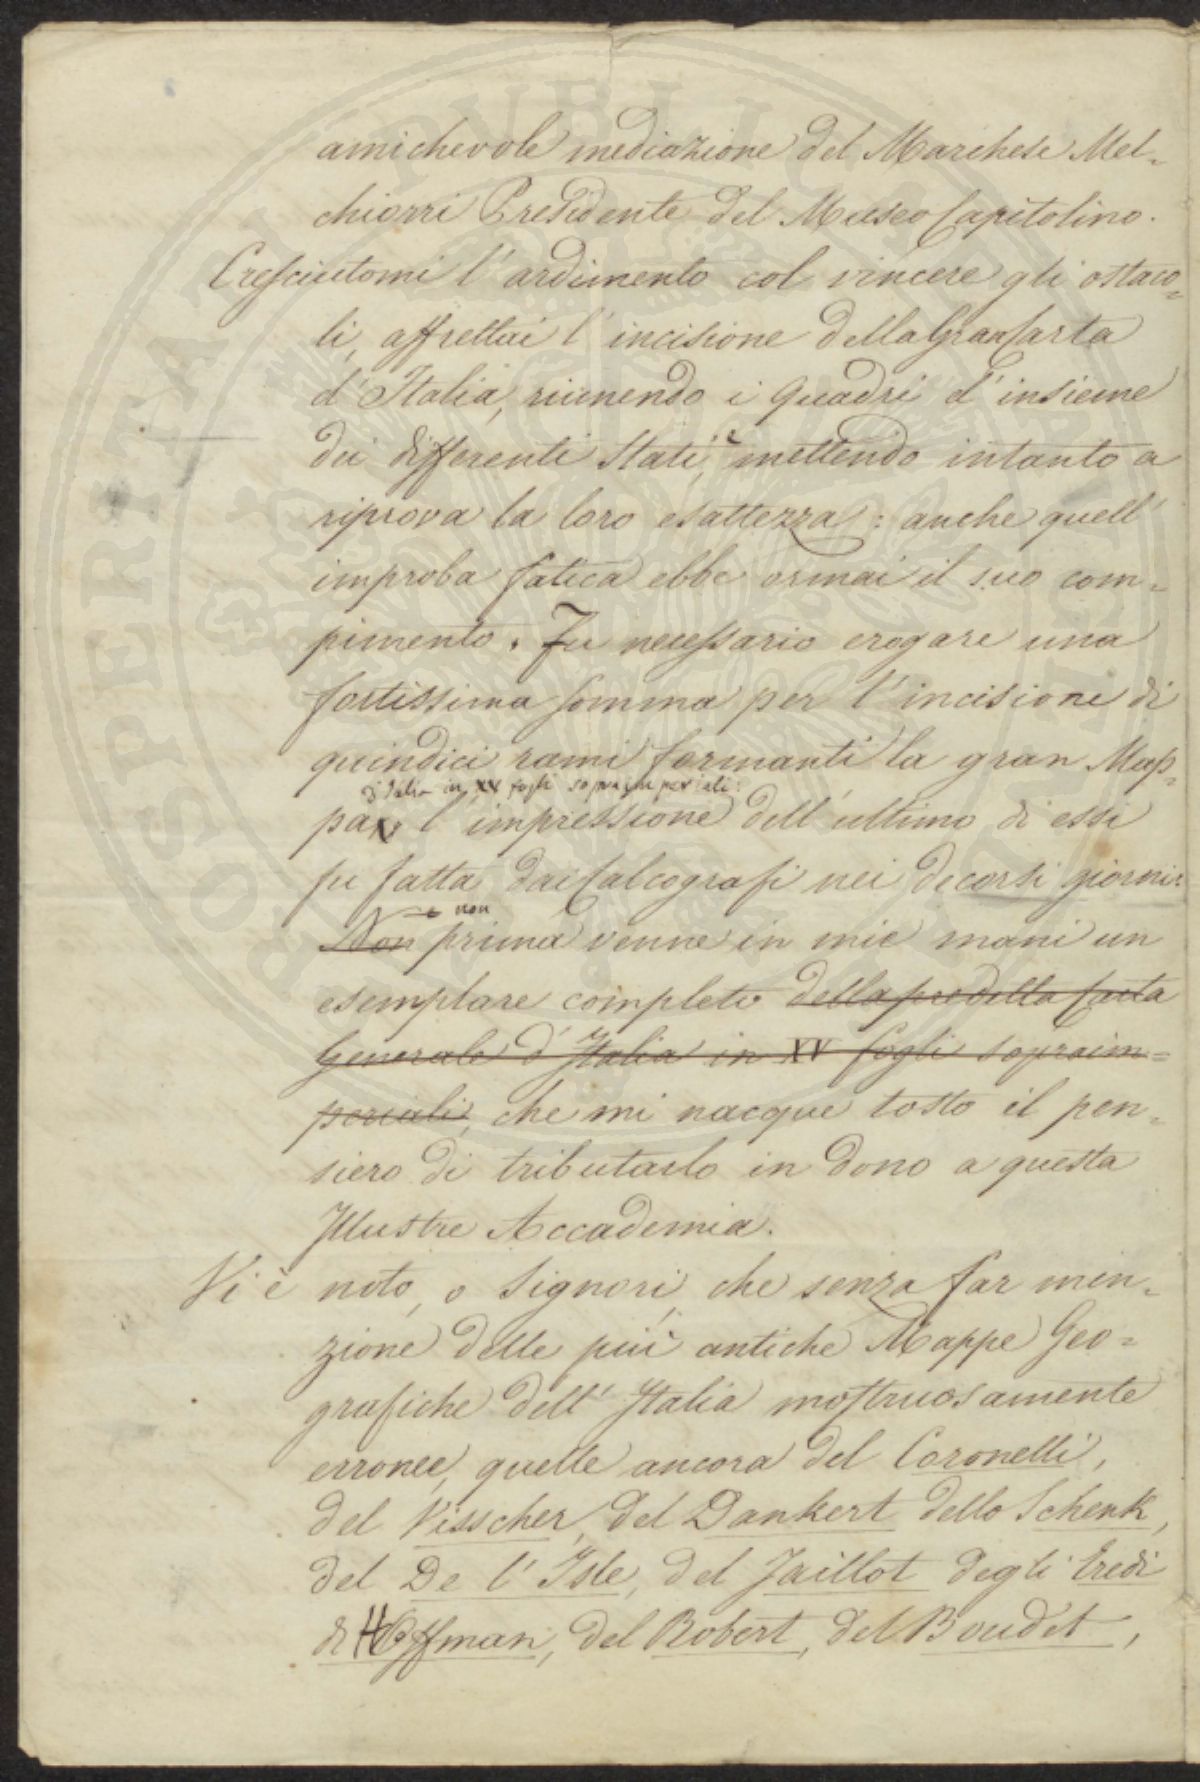 amichevole mediazione del Marchese Mel-
chiorri Presidente del Museo Capitolino.
Cresciutomi l'ardimento col vincere gli ostaco-
li, affrettai l'incisione della Gran Carta
d'Italia, riunendo i Quadri d'insieme
dei differenti Stati, e mettendo intanto a
riprova la loro esattezza: anche quell'
improba fatica ebbe ormai il suo com-
pimento. Fu necessario erogare una
fortissima somma per l'incisione di
quindici rami formanti la gran Map-
d'Italia in XV fogli sopraimperiali:
pa, l'impressione dell'ultimo di essi
fu fatta dai Calcografi nei decorsi giorni:
e non
Non prima venne in mie mani un
esemplare completo della predetta Carta
Generale d'Italia in XV fogli sopraim-
periali, che mi nacque tosto il pen-
siero di tributarlo in dono a questa
Illustre Accademia.
Vi è noto, o Signori, che senza far men-
zione delle più antiche Mappe Geo-
grafiche dell'Italia mostruosamente
erronee, quelle ancora del Coronelli,
del Visscher, del Dankert dello Schenk,
del De l'Isle, del Jaillot degli Eredi
di Hoffman, del Robert, del Boudet,
PROSPERITATI PUBLICAE